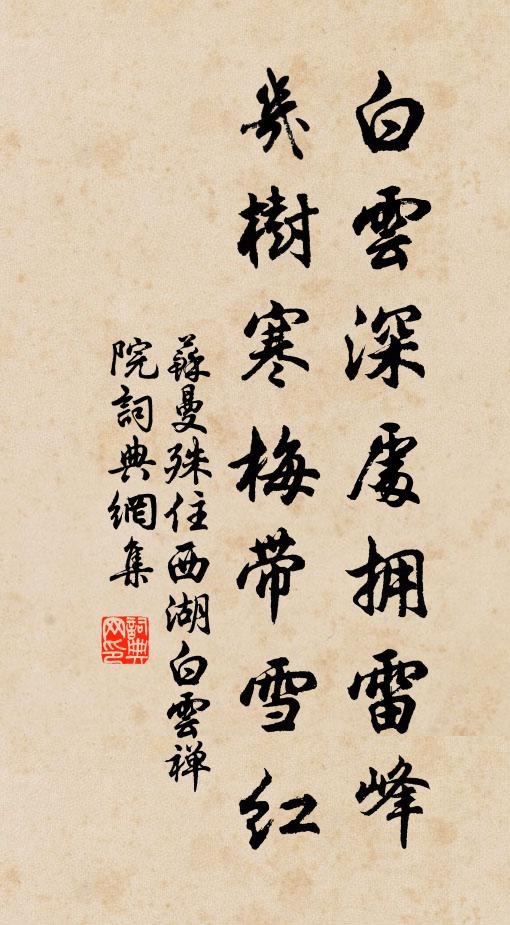 白雲深處拥雷峰
幾樹寒梅带雪红
蘇曼殊住西湖白雲禅
院詞典網集
詞典
网印